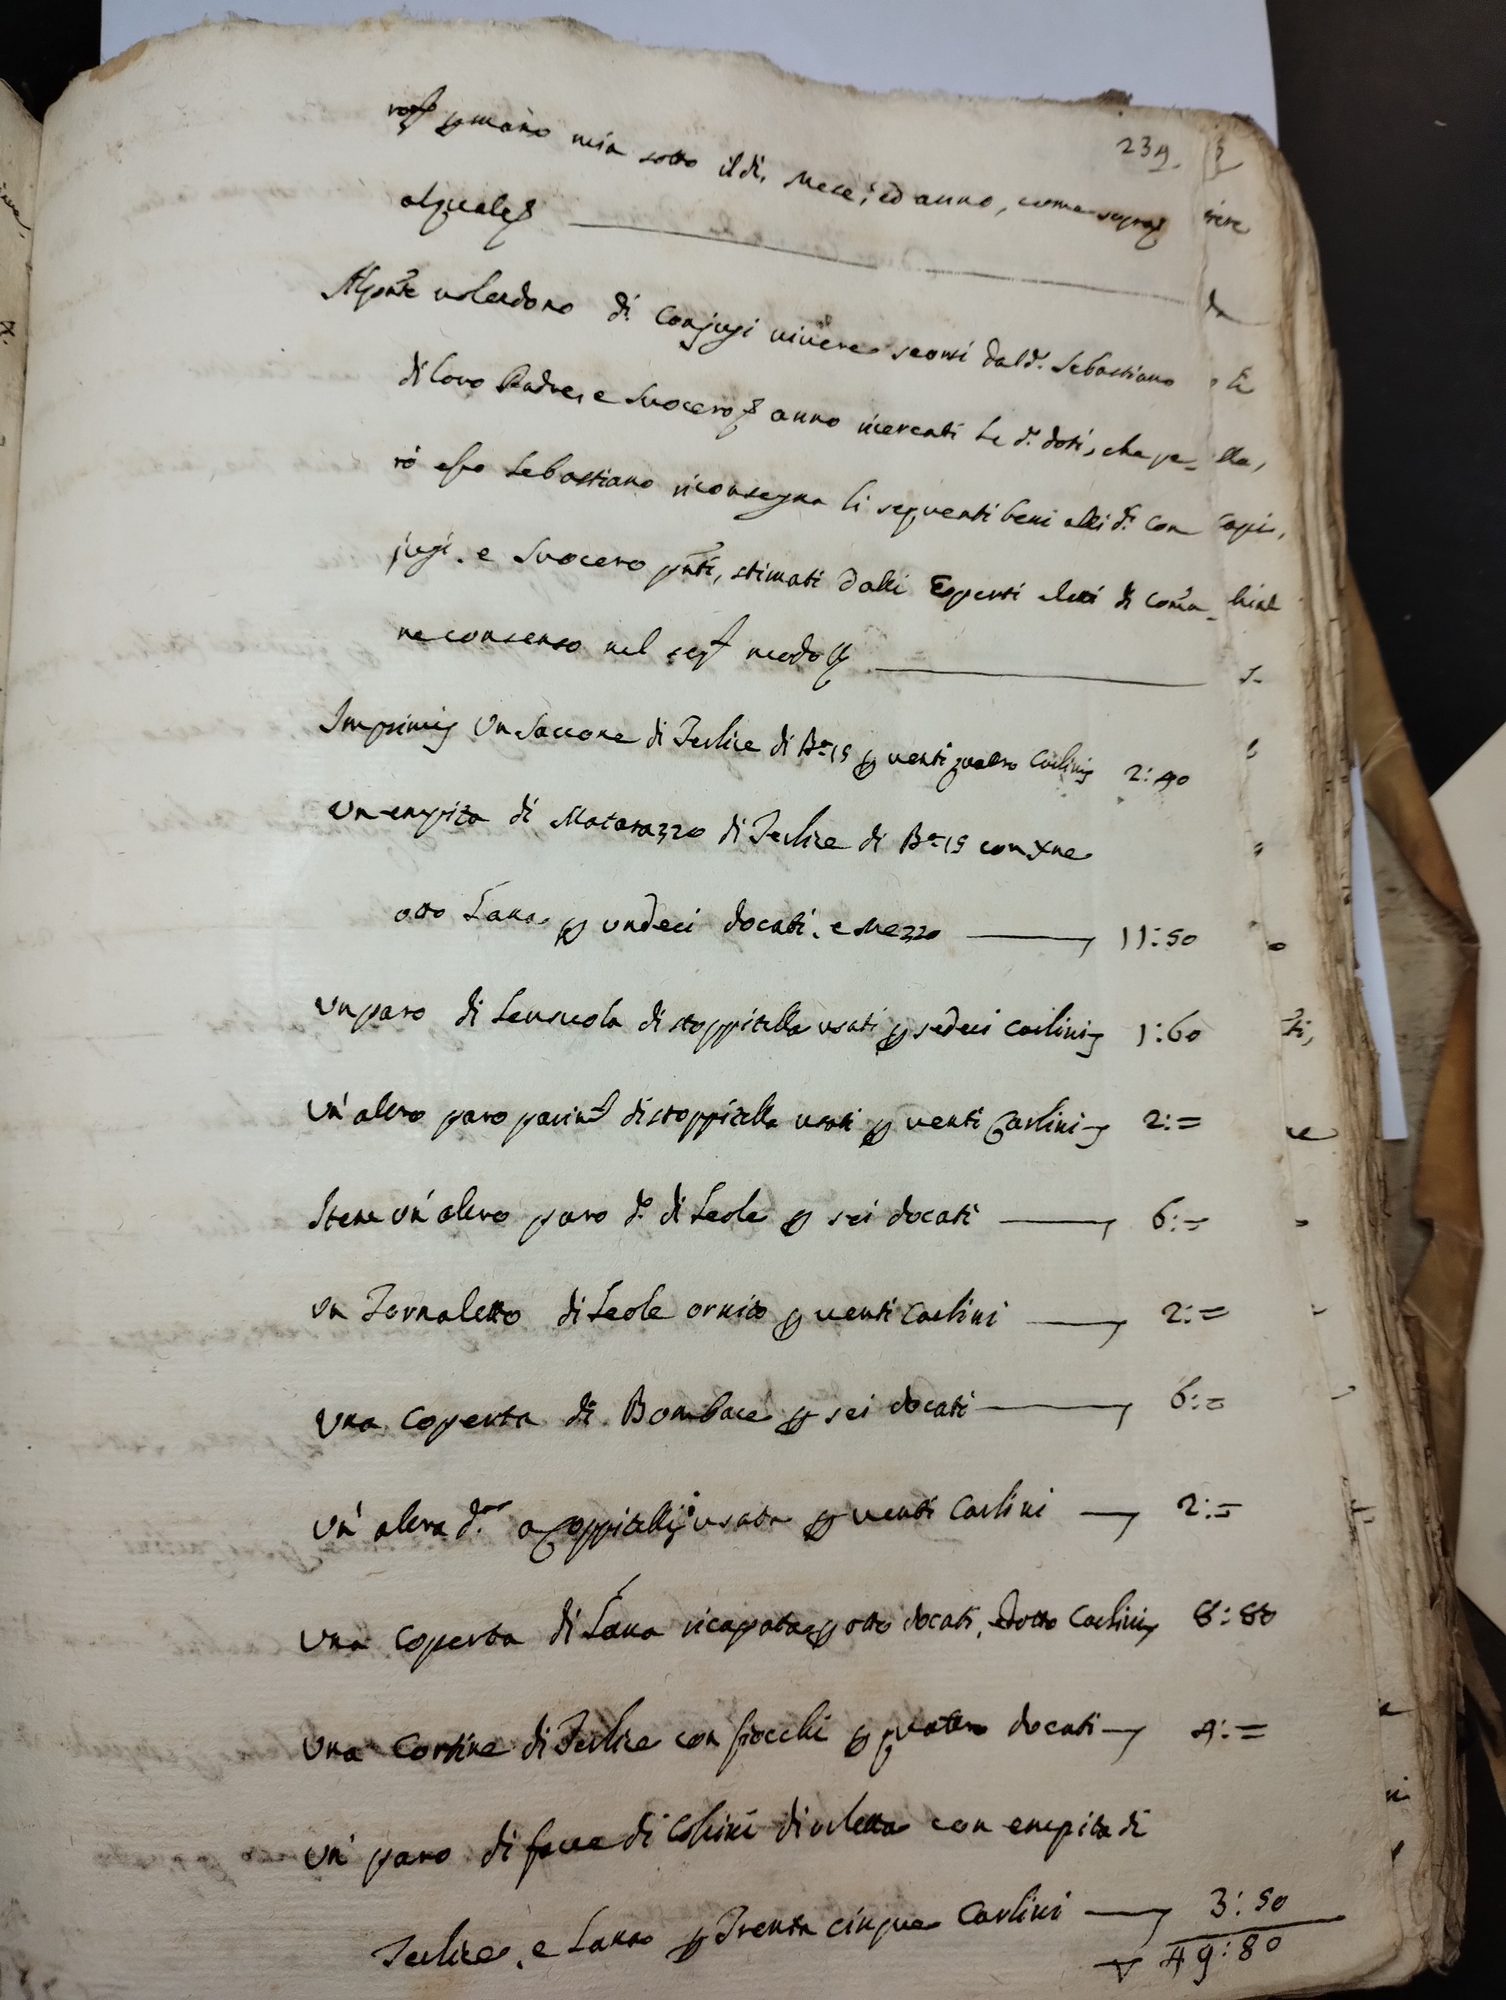 239.
mano mia sotto il dì, Mese, ed anno, come sopra
al quale
Al pnte volendono dì Conjugi vivere scorsi dal d.º Sebastiano
di loro Padre, e Suocero anno ricercati le d.e doti, che pe=
rò esso Sebastiano riconsegna li seguenti beni alli d.i Con
jugi. e Suocero pnti, stimati dalli Esperti eletti di coma=
ne consenso nel seg modo
Imprimis Un Saccone di Terlice di B.e 15 p venti quatro Carlini 2:40
Un empita di Matarazzo di Terlice di B.e 15 con
otto Lana p undeci docati. e mezzo 11:50
Un paro di Lensuola di stoppitella usati p sedeci Carlini 1:60
Un' altro paro parimt di stoppitella usati p venti Carlini 2:=
Item un' altro paro d.º di Leole p sei docati 6:=
Un Tornaletto di Leole ornito p venti Carlini 2:=
Una Coperta di Bombace p sei docati 6:=
Un' altra d.a usata p venti Carlini 2:=
Una Coperta di Lana ricapata p otto docati, ed otto Carlini 8:80
Una Cortina di Terlice con fiocchi p quatro docati 4:=
Un' paro di facce di Coscini di oletta con empita di
Terlice, e Lana p Trenta cinque Carlini 3:50
49:80